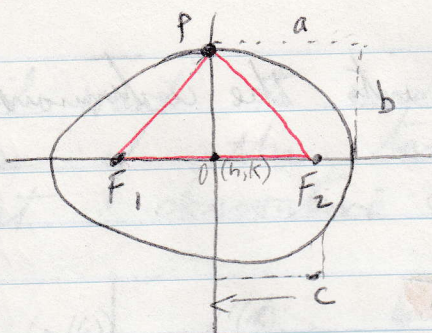 P
a
b
F1
O (h,k)
F2
c